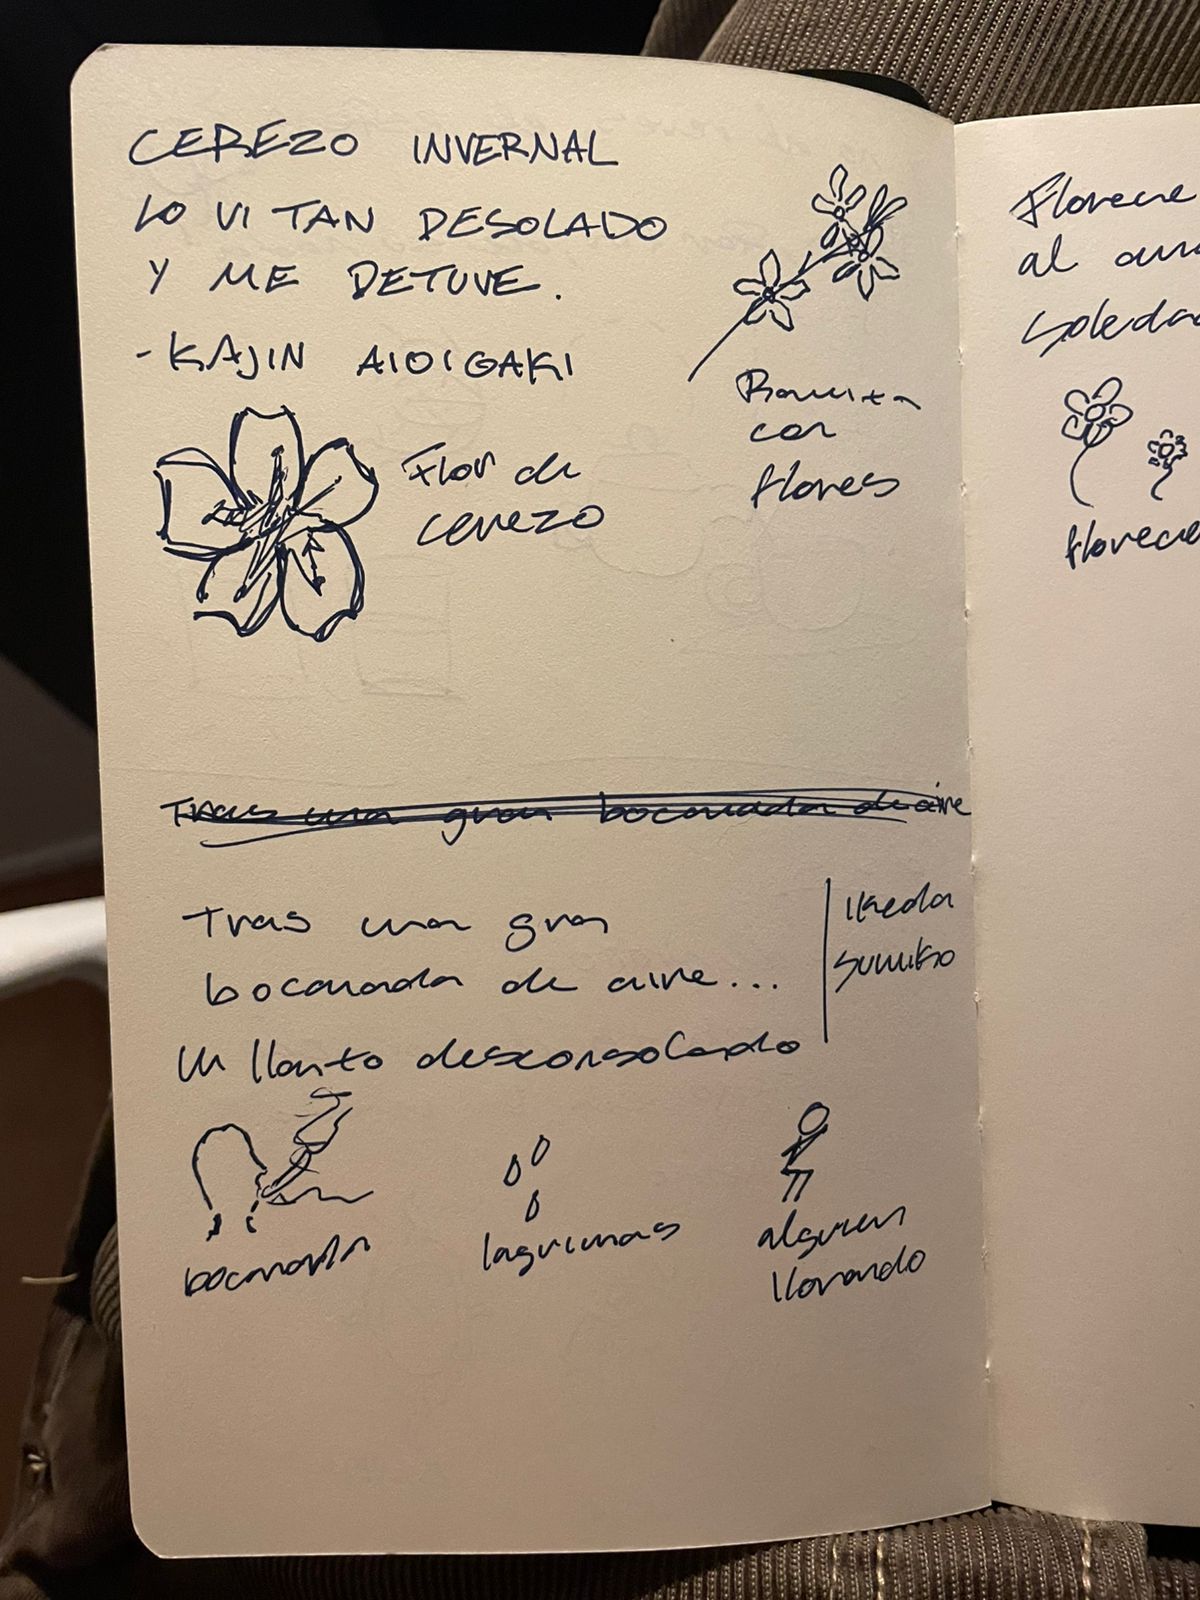 CEREZO INVERNAL
LO VI TAN DESOLADO
Y ME DETUVE.
- KAJIN AIOIGAKI
Flor de
cerezo
Ramita
con
flores
Tras una gran bocanada de aire
Tras una gran
bocanada de aire...
un llanto desconsolado
Ikeda
Sumiko
bocanada
lagrimas
alguien
llorando
Florece
al
soledad
florece